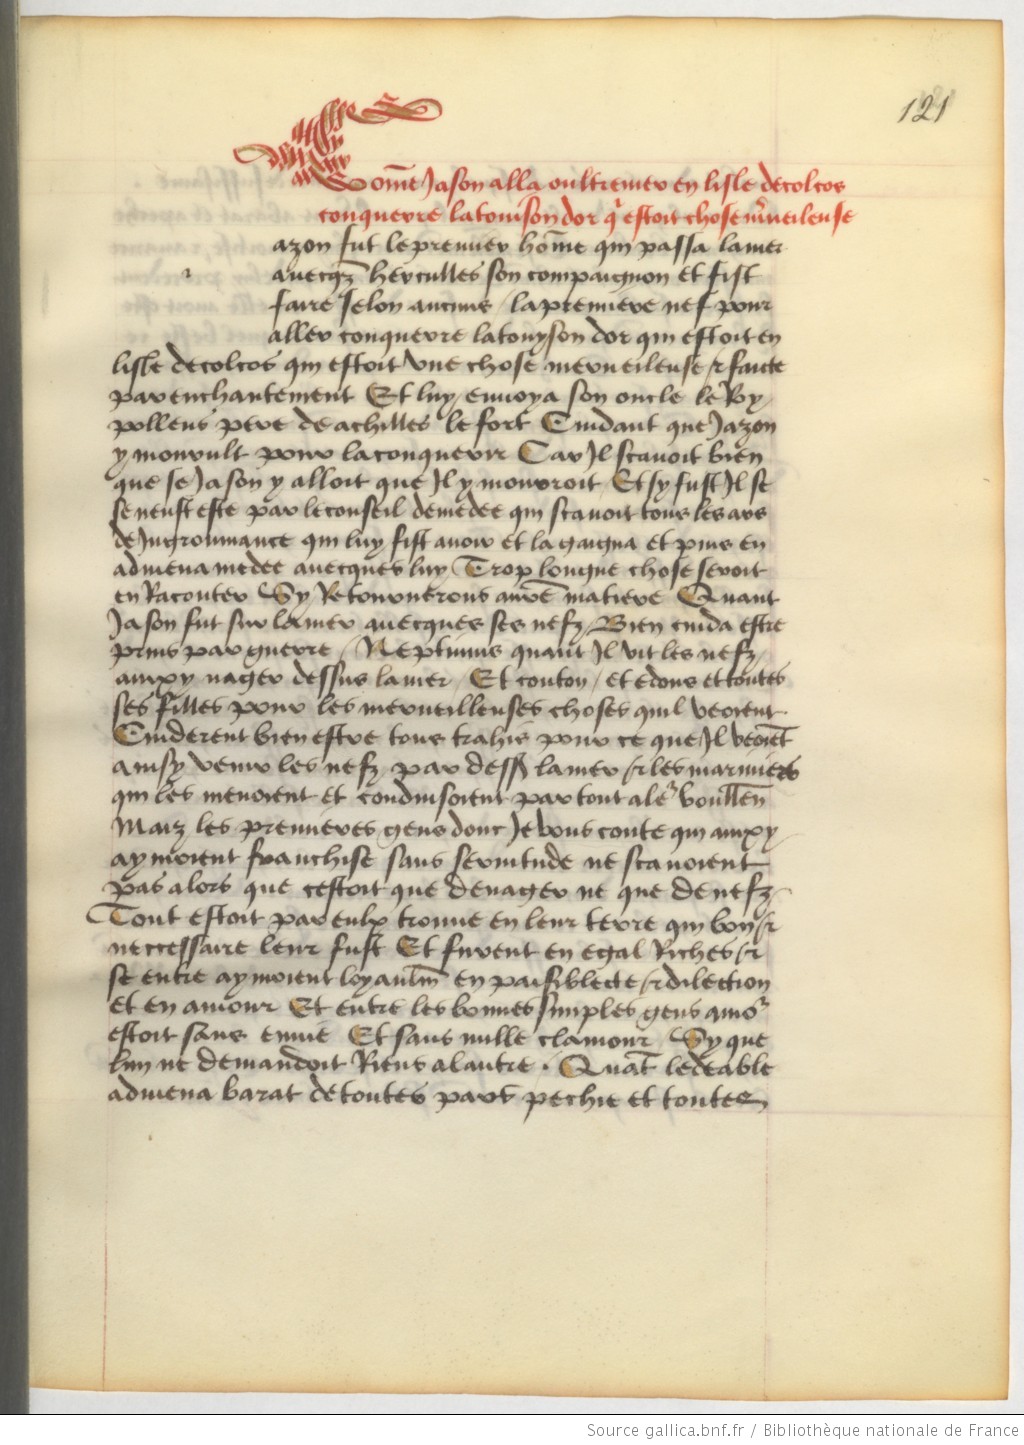 121
Com̄e Jason alla oultremer en lisle de colcos
conquerre la toinson dor q̄ estoit chose m̄ueilleuse
azon fut le premier hom̄e qui passa la mer
avecq̄z herculles son compaignon et fist
faire selon aucuns / la premiere nef pour
aller conquerre la toyson dor qui estoit en
lisle de colcos qui estoit vne chose merueileuse & faicte
par enchantement Et luy enuoya son oncle le Roy
polleus pere de achilles le fort Cuidant que Jazon
y mourult pour la conquerir Car Il scauoit bien
que se Jason y alloit que Il y mourroit Et sy fust Il se
se neust este par le conseil de medee qui scauoit tous les ars
de Ingroumance qui luy fist auoir et la gaigna et puis en
admena medee auecques luy Trop longue chose seroit
en Raconter Sy Retournerons a nr̄e matiere Quant
Jason fut sur la mer auecques ses nefz Bien cuida estre
prins par guerre / Neptunus quant Il vit les nefz
ainxy nager dessus la mer / Et couton / et edons et toutes
ses filles pour les merueilleuses choses quil veoient
Cuiderent bien estre tous trahis pour ce que Il veoiēt
ainsy venir les nefz par dess̄ la mer & les mariniers
qui les menoient et conduisoient par tout a le'' voullen̄
Maiz les premieres gens dont Je vous conte qui ainxy
aymoient franchise sans seruitude ne scauoient
pas alors que cestoit que de nager ne que de nefz
Tout estoit par eulx trouue en leur terre qui bon &
neccessaire leur fust Et furent en egal Riches &
se entre aymoient loyaulm̄ en paisiblecte & dilection
et en amour Et entre les bonnes simples gens amo''
estoit sans enuie Et sans nulle clamour / Sy que
lun ne demandoit Riens a lautre . Quāt le deable
admena barat de toutes pars pechie et toutes
Source gallica.bnf.fr / Bibliothèque nationale de France